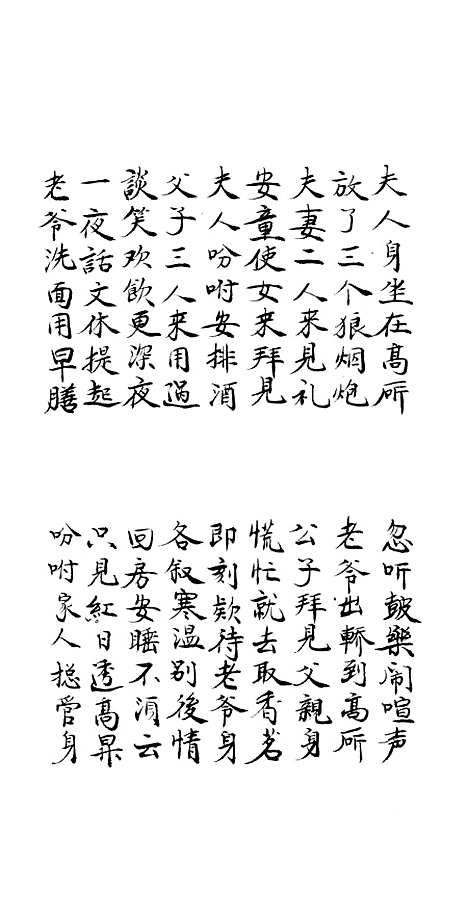 夫人身坐在高所
忽听皷樂闹喧声
放了三个狼烟炮
老爷出轿到高所
夫妻二人来見礼
公子拜見父親身
安童使女来拜見
慌忙就去取香茗
夫人吩咐安排酒
即刻欵待老爷身
父子三人来用過
各叙寒温别後情
談笑欢飲更深夜
回房安睡不須云
一夜話文休提起
只見紅日透高昇
老爷洗面用早膳
吩咐家人揔管身